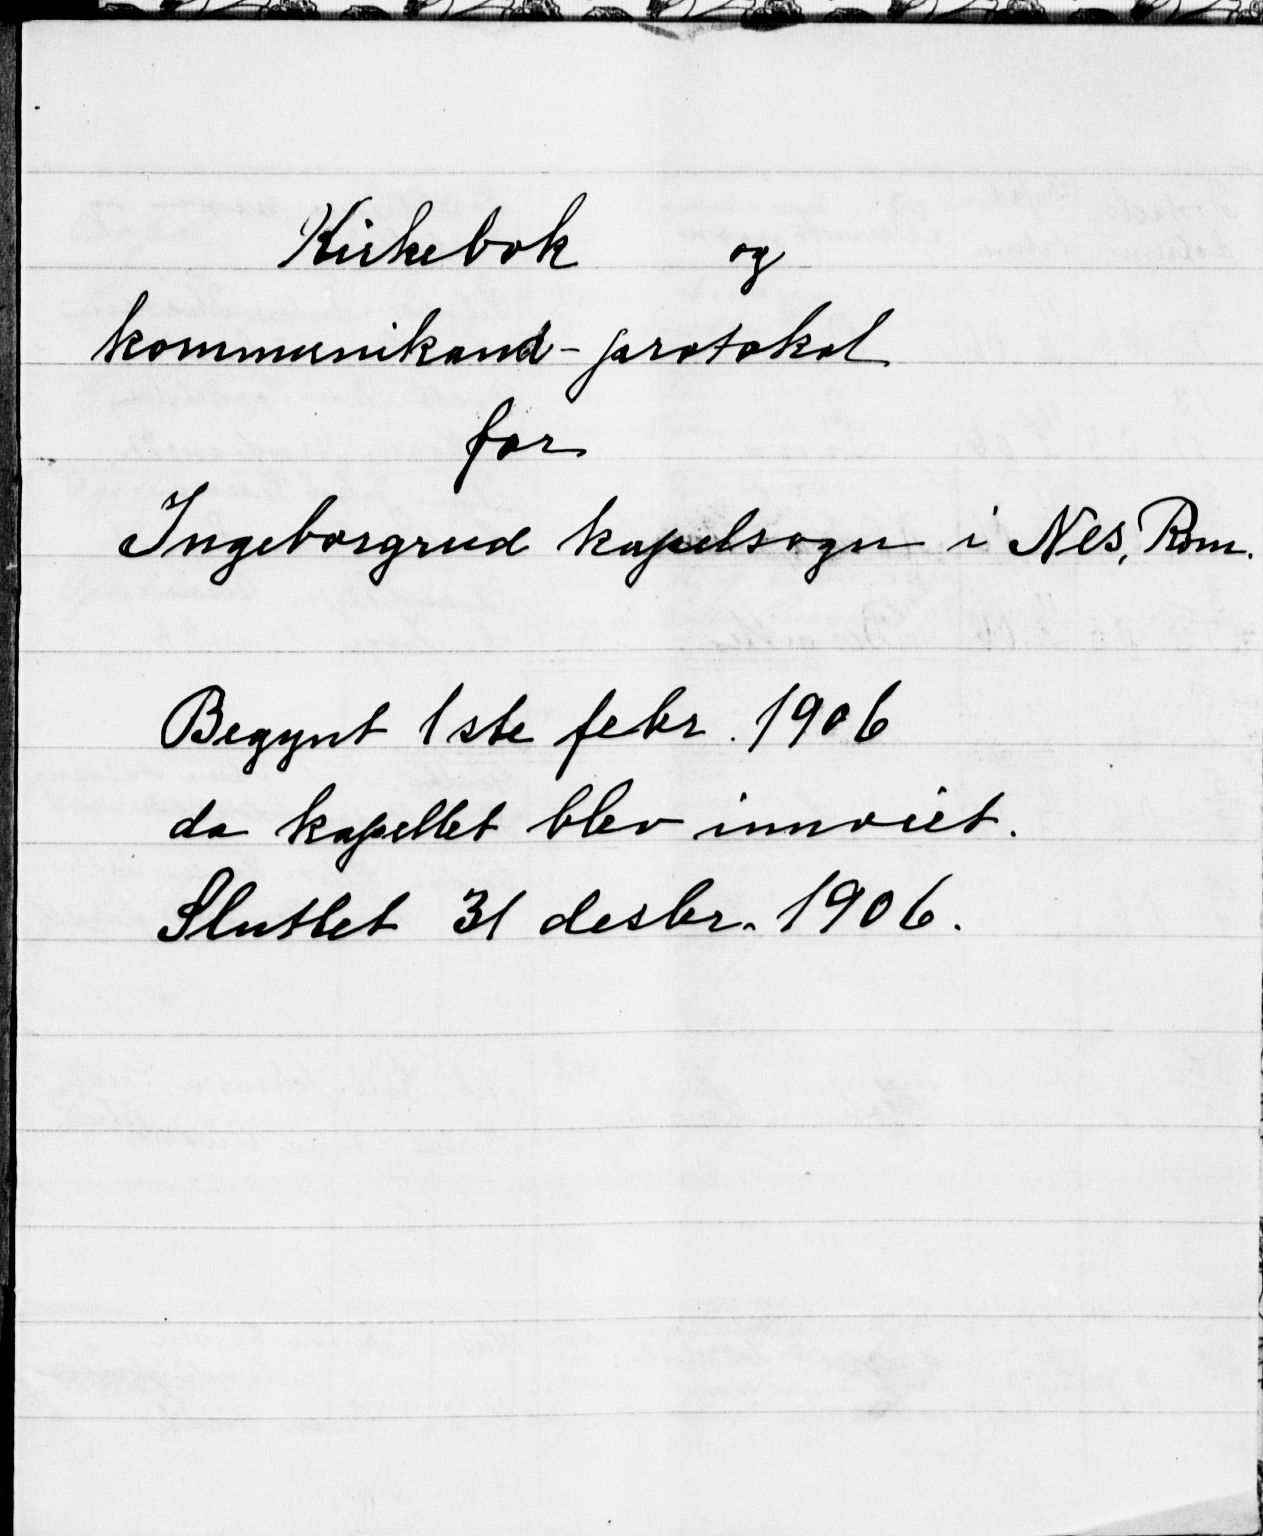 Kirkebok og
kommunikand-protokol
for
Ingeborgrud kapelsogn i Nes, Rom.
Begynt 1ste febr. 1906
da kapellet blev innviet.
Sluttet 31 desbr. 1906.